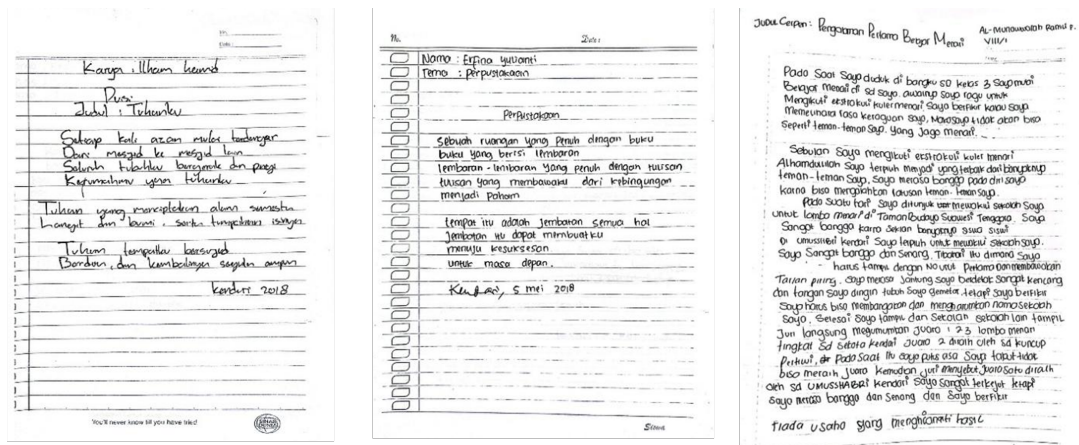 No.
Date:
Karya : Ilham
Puisi
Judul : Tuhanku
Setiap kali azan mulai terdengar
Dari mesjid ke mesjid lain
Seluruh tubuhku bergerak dan pergi
Kerumahmu ya tuhanku
Tuhan yang menciptakan alam semesta
Langit dan bumi, serta isinya
Tuhan tempatku bersujud
Berdoa, dan ampun
kendari 2018
You'll never know till you have tried
No.
Date:
Nama : Erfina yulianti
Tema : Perpustakaan
Perpustakaan
Sebuah ruangan yang penuh dengan buku
buku yang berisi lembaran
lembaran-lembaran yang penuh dengan tulisan
tulisan yang membawaku dari kebingungan
menjadi paham
tempat itu adalah jembatan semua hal
jembatan itu dapat membuatku
menuju kesuksesan
untuk masa depan.
Kendari, 5 mei 2018
Judul Cerpen: Pengalaman Pertama Belajar Menari
AL-Munawwarah Ramli P.
VIII/1
Pada Saat Saya duduk di bangku SD kelas 3 Saya mulai
Belajar Menari di sd saya. awalnya Saya ragu untuk
Mengikuti ekstrakulikuler menari Saya berfikir kalau Saya
rasa keraguan saya, Maka Saya tidak akan bisa
Seperti teman-teman Saya yang Jago menari.
Sebulan Saya mengikuti ekstrakulikuler menari
Alhamdulillah Saya terpilih menjadi yang terbaik dari banyaknya
teman-teman Saya, Saya merasa bangga pada diri saya
karna bisa teman-teman Saya.
Pada suatu hari Saya ditunjuk mewakili sekolah Saya
untuk lomba menari di Taman Budaya Sulawesi Tenggara. Saya
Sangat bangga karna Sekian banyaknya siswa siswi
Di umusshabri kendari Saya terpilih untuk mewakili sekolah Saya.
Saya Sangat bangga dan Senang. Tibalah itu dimana Saya
harus tampil dengan No urut Pertama Dan membawakan
Tarian piring. Saya merasa Jantung Saya berdetak Sangat kencang
dan tangan Saya dingin tubuh Saya gemetar, tetapi Saya berfikir
Saya harus bisa membanggakan dan mengharumkan nama Sekolah
Saya, Selesai Saya tampil dan Sekolah Sekolah lain tampil
Juri langsung megumumkan Juara 1 2 3 lomba menari
tingkat Sd Sekota kendari Juara 2 diraih oleh sd kuncup
Pertiwi, Pada Saat itu saya putus asa Saya takut tidak
bisa meraih Juara Kemudian Juri menyebut, Juara Satu diraih
oleh sd UMUSSHABRI Kendari Saya Sangat terkejut tetapi
Saya merasa bangga dan Senang dan Saya berfikir
tiada usaha yang menghianati hasil